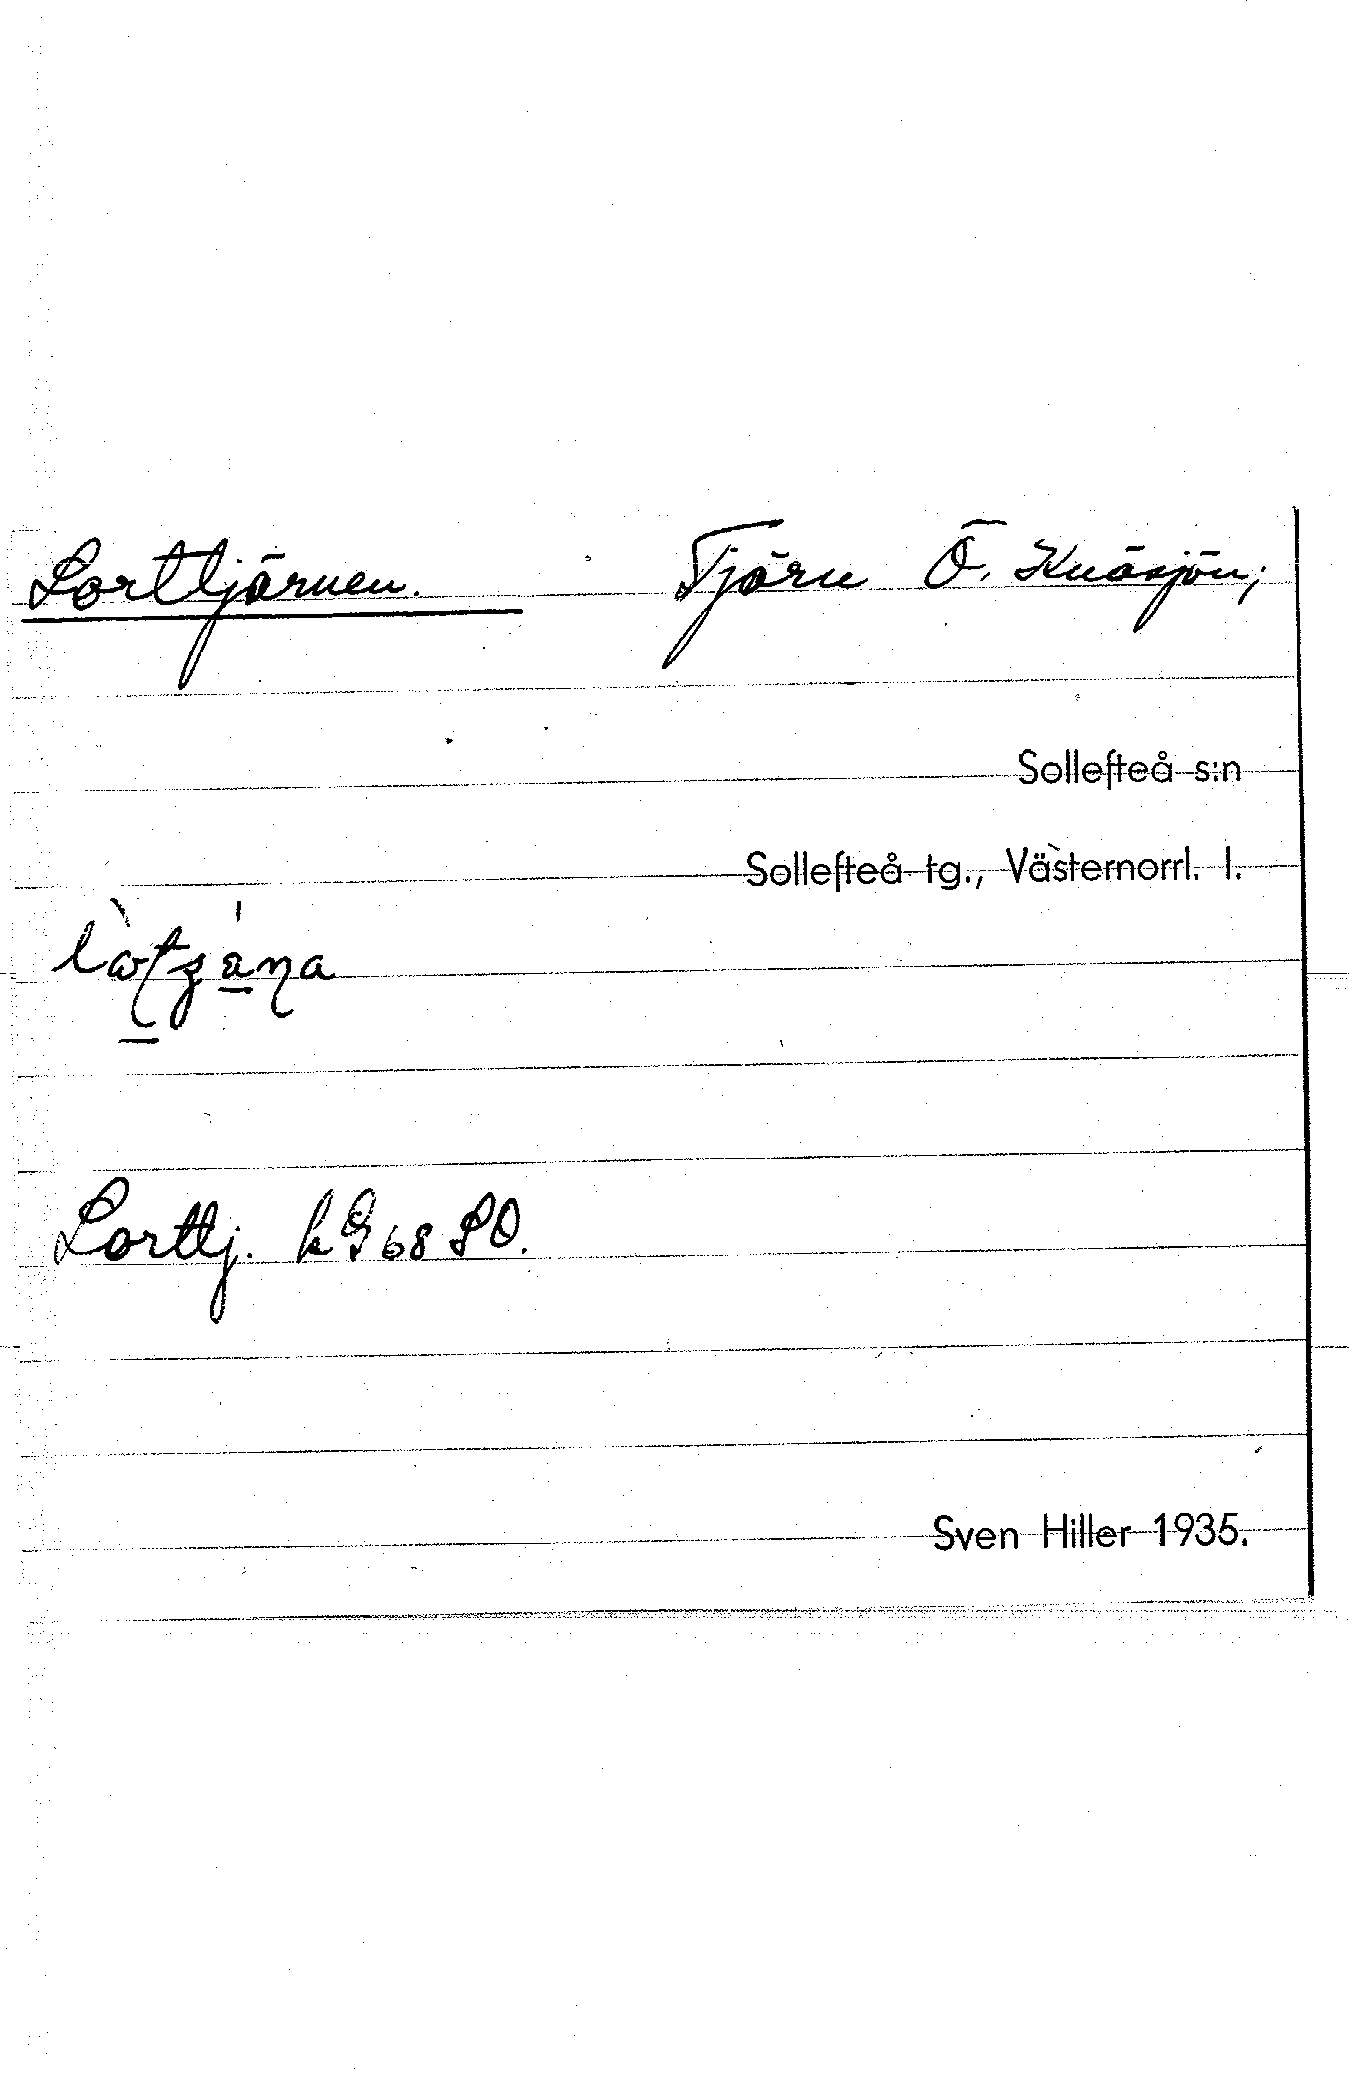 Lorttjärnen. Tjärn Ö. Knäsjön;
Sollefteå s:n
Sollefteå tg., Västernorrl. l.
Lorttj. kG68SO.
Sven Hiller 1935.